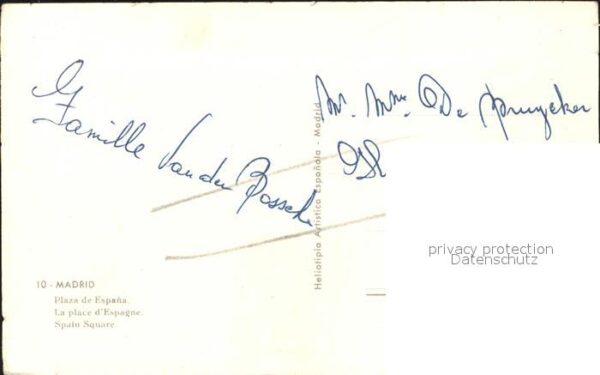 Famille Van den Bossche
Mr. Mme. De Spruycker
Heliotipia Artística Española - Madrid
privacy protection
Datenschutz
10 - MADRID
Plaza de España.
La place d'Espagne.
Spain Square.